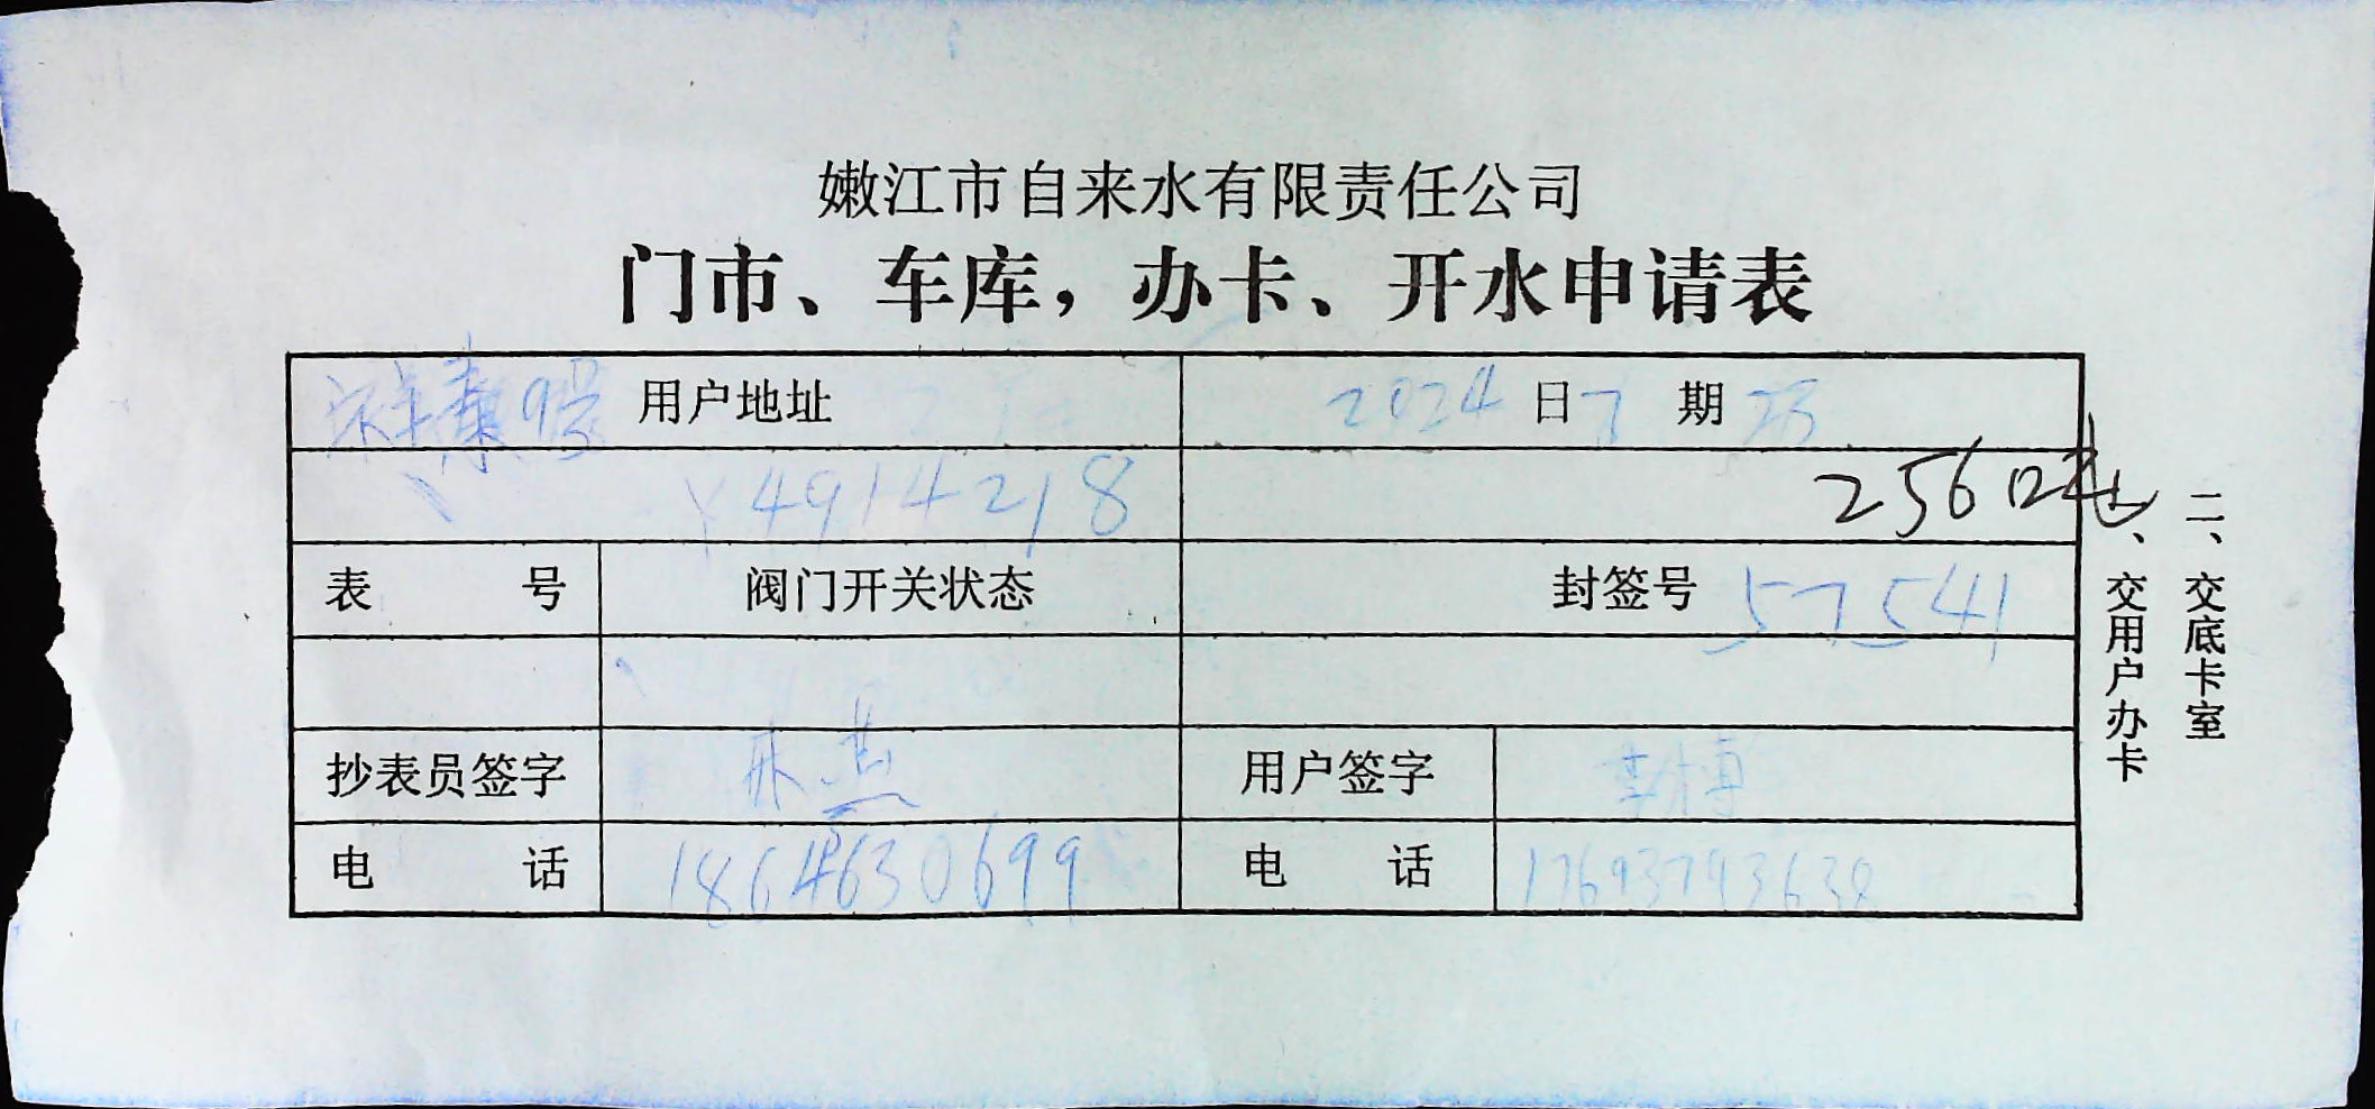 嫩江市自来水有限责任公司
门市、车库，办卡、开水申请表
9号 用户地址 2024 日 7 期 23
Y4914218 2560
表 号 阀门开关状态 封签号 57541
抄表员签字 用户签字 李博
电 话 18646630699 电 话 17693793638
、交用户办卡
二、交底卡室